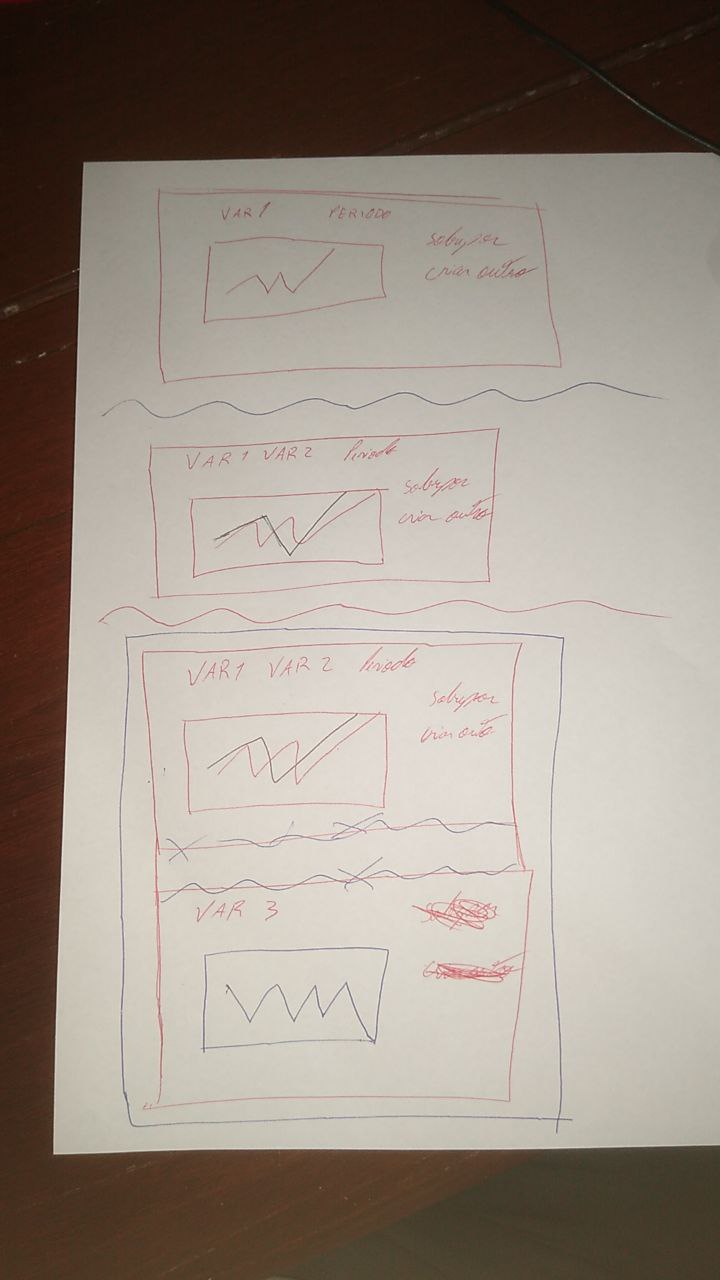 VAR 1 PERIODO
sobrepor
criar outro
VAR 1 VAR 2 Periodo
sobrepor
criar outro
VAR 1 VAR 2 Periodo
sobrepor
criar outro
VAR 3